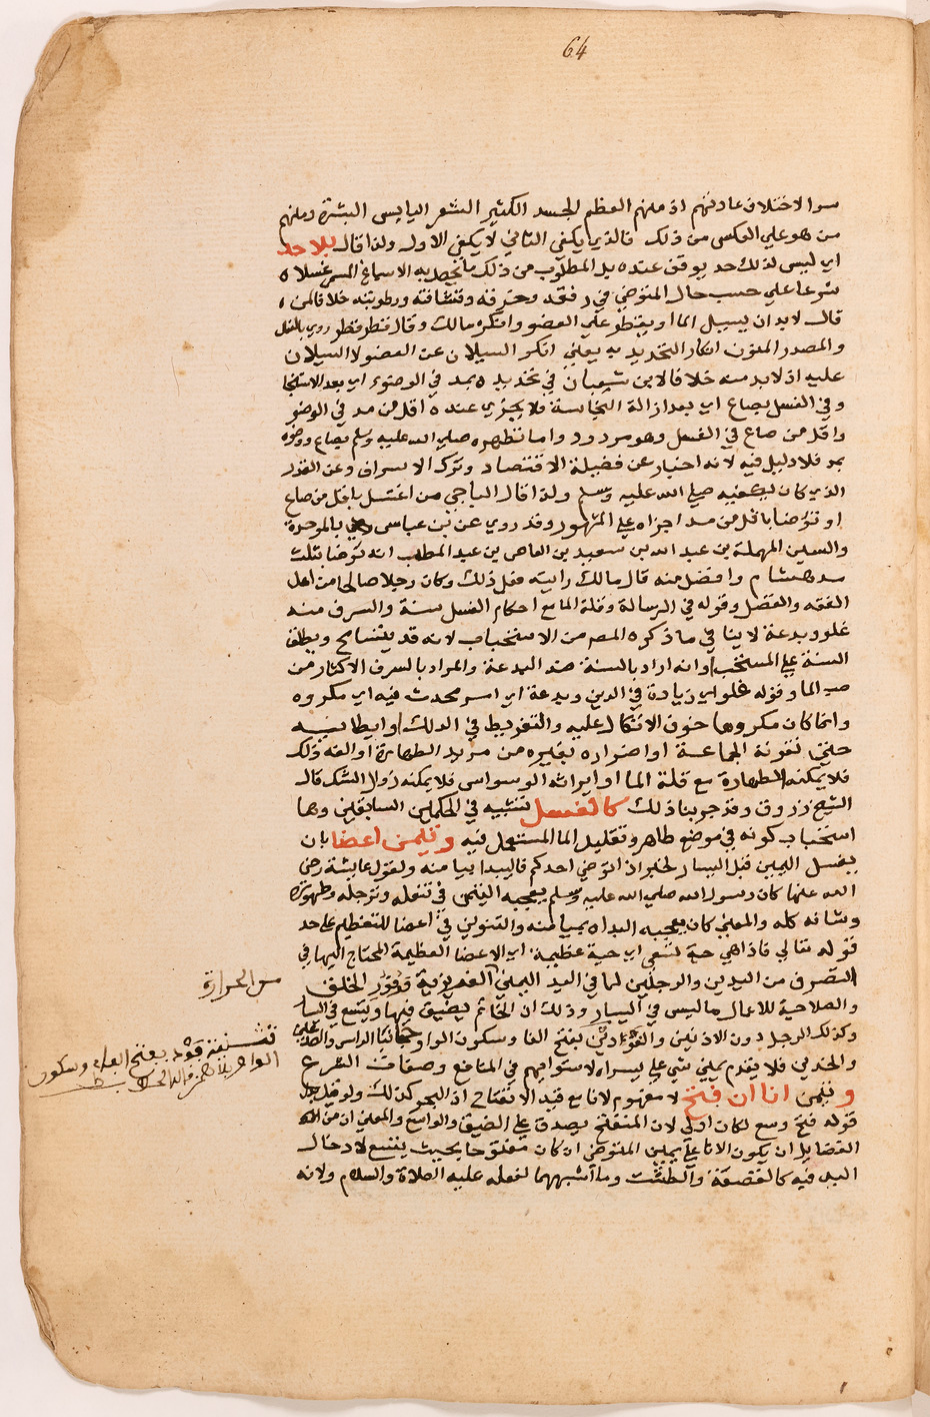 64
سوا لاختلاف عاداتهم اذ منهم العظم الجسد الكثير الشعر اليابس البشرة ومنهم
من هو علي العكس من ذلك فالذي يكفي الثاني لا يكفي الاول ولذا قال بلا حد
اي ليس لذلك حد يوقف عنده بل المطلوب من ذلك ما يحصل به الاسباغ المسمي غسلا
شرعا علي حسب حال المتوضي في رفقه وخرقه وقشافته ورطوبته خلافا لمن
قال لا بد ان يسيل الما او يقطر علي العضو وانكره مالك وقال قطر قطر روي بالفعل
والمصدر المنون انكار التحديد به يعني انكر السيلان عن العضو لا السيلان
عليه اذ لا بد منه خلافا لابن شعبان في تحديده بمد في الوضوء اي بعد الاستنجا
وفي الغسل بصاع اي بعد ازالة النجاسة فلا يجزي عنده اقل من مد في الوضو
واقل من صاع في الغسل وهو مردود واما تطهره صلي الله عليه وسلم بصاع ووضوه
بمد فلا دليل فيه لانه اخبار عن فضيلة الاقتصاد وترك الاسراف وعن القدر
الذي كان يكفيه صلي الله عليه وسلم ولذا قال الباجي من اغتسل باقل من صاع
او توضا باقل من مد اجزاه علي المشهور وقد روي عن بن عباس بالموحدة
والسين المهملة بن عبد الله بن سعيد بن العاص بن عبد المطلب انه توضا بثلث
مد هشام وافضل منه قال مالك رايته فعل ذلك وكان رجلا صالحا من اهل
الفقه والفضل وقوله في الرسالة وقلة الما مع احكام الغسل سنة والسرف منه
غلو وبدعة لا ينافي ما ذكره المص من الاستحباب لانه قد يتسامح ويطلق
السنة علي المستحب او انه اراد بالسنة ضد البدعة والمراد بالسرف الاكثار من
صب الما وقوله غلو اي زيادة في الدين وبدعة اي امر محدث فيه اي مكروه
وانما كان مكروها خوف الاتكال عليه والتفريط في الدلك او ابطا نيه
حتي تفوته الجماعة او اضراره بغيره من مريد الطهارة او الفه ذلك
فلا يمكنه الطهارة مع قلة الما او ايراثه الوسواس فلا يمكنه زوال الشك قال
الشيخ زروق وقد جربنا ذلك كالغسل تشبيه في الحكمين السابقين وهما
استحباب كونه في موضع طاهر وتقليل الما المستعمل فيه وتيمن اعضا بان
يغسل اليمين قبل اليسار لخبر اذا توضي احدكم فاليبدا بيامنه ولقول عايشة رضي
الله عنها كان رسول الله صلي الله عليه وسلم يعجبه التيمن في تنعله وترجله وطهوره
وشانه كله والمعني كان يعجبه البداه بميامنه والتنوين في اعضا للتعظيم علي حد
قوله تعالي فاذا هي حية تسعي اي حية عظيمة اي الاعضا العظيمة المحتاج اليها في
التصرف من اليدين والرجلين لما في اليد اليمني الغريزية وفور الخلق
والصلاحية للاعمال ما ليس في اليسار وذلك ان الخاتم يضيق فيها ويتسع في اليسار
وكذلك الرجل دون الاذنين والفودين بفتح الفا وسكون الواو جانبا الراس والصدغين
والخدين فلا يقدم يمني شي علي يسراه لاستوايهم في المنافع وصفات الشرع
وتيمن انا ان فتح لا مفهوم لانا مع قيد الانفتاح اذ البحر كذلك ولو قيل بدل
قوله فتح وسع لكان اولي لان المنفتح يصدق علي الضيق والواسع والمعني ان من
الفضايل ان يكون الانا علي يمين المتوضي ان كان مفتوحا بحيث يتسع لادخال
اليد فيه كالقصعة والطشت وما اشبههما لفعله عليه الصلاة والسلام ولانه
من الحرارة
تثنية فود بفتح الفاء وسكون
الواو بلا همز قاله